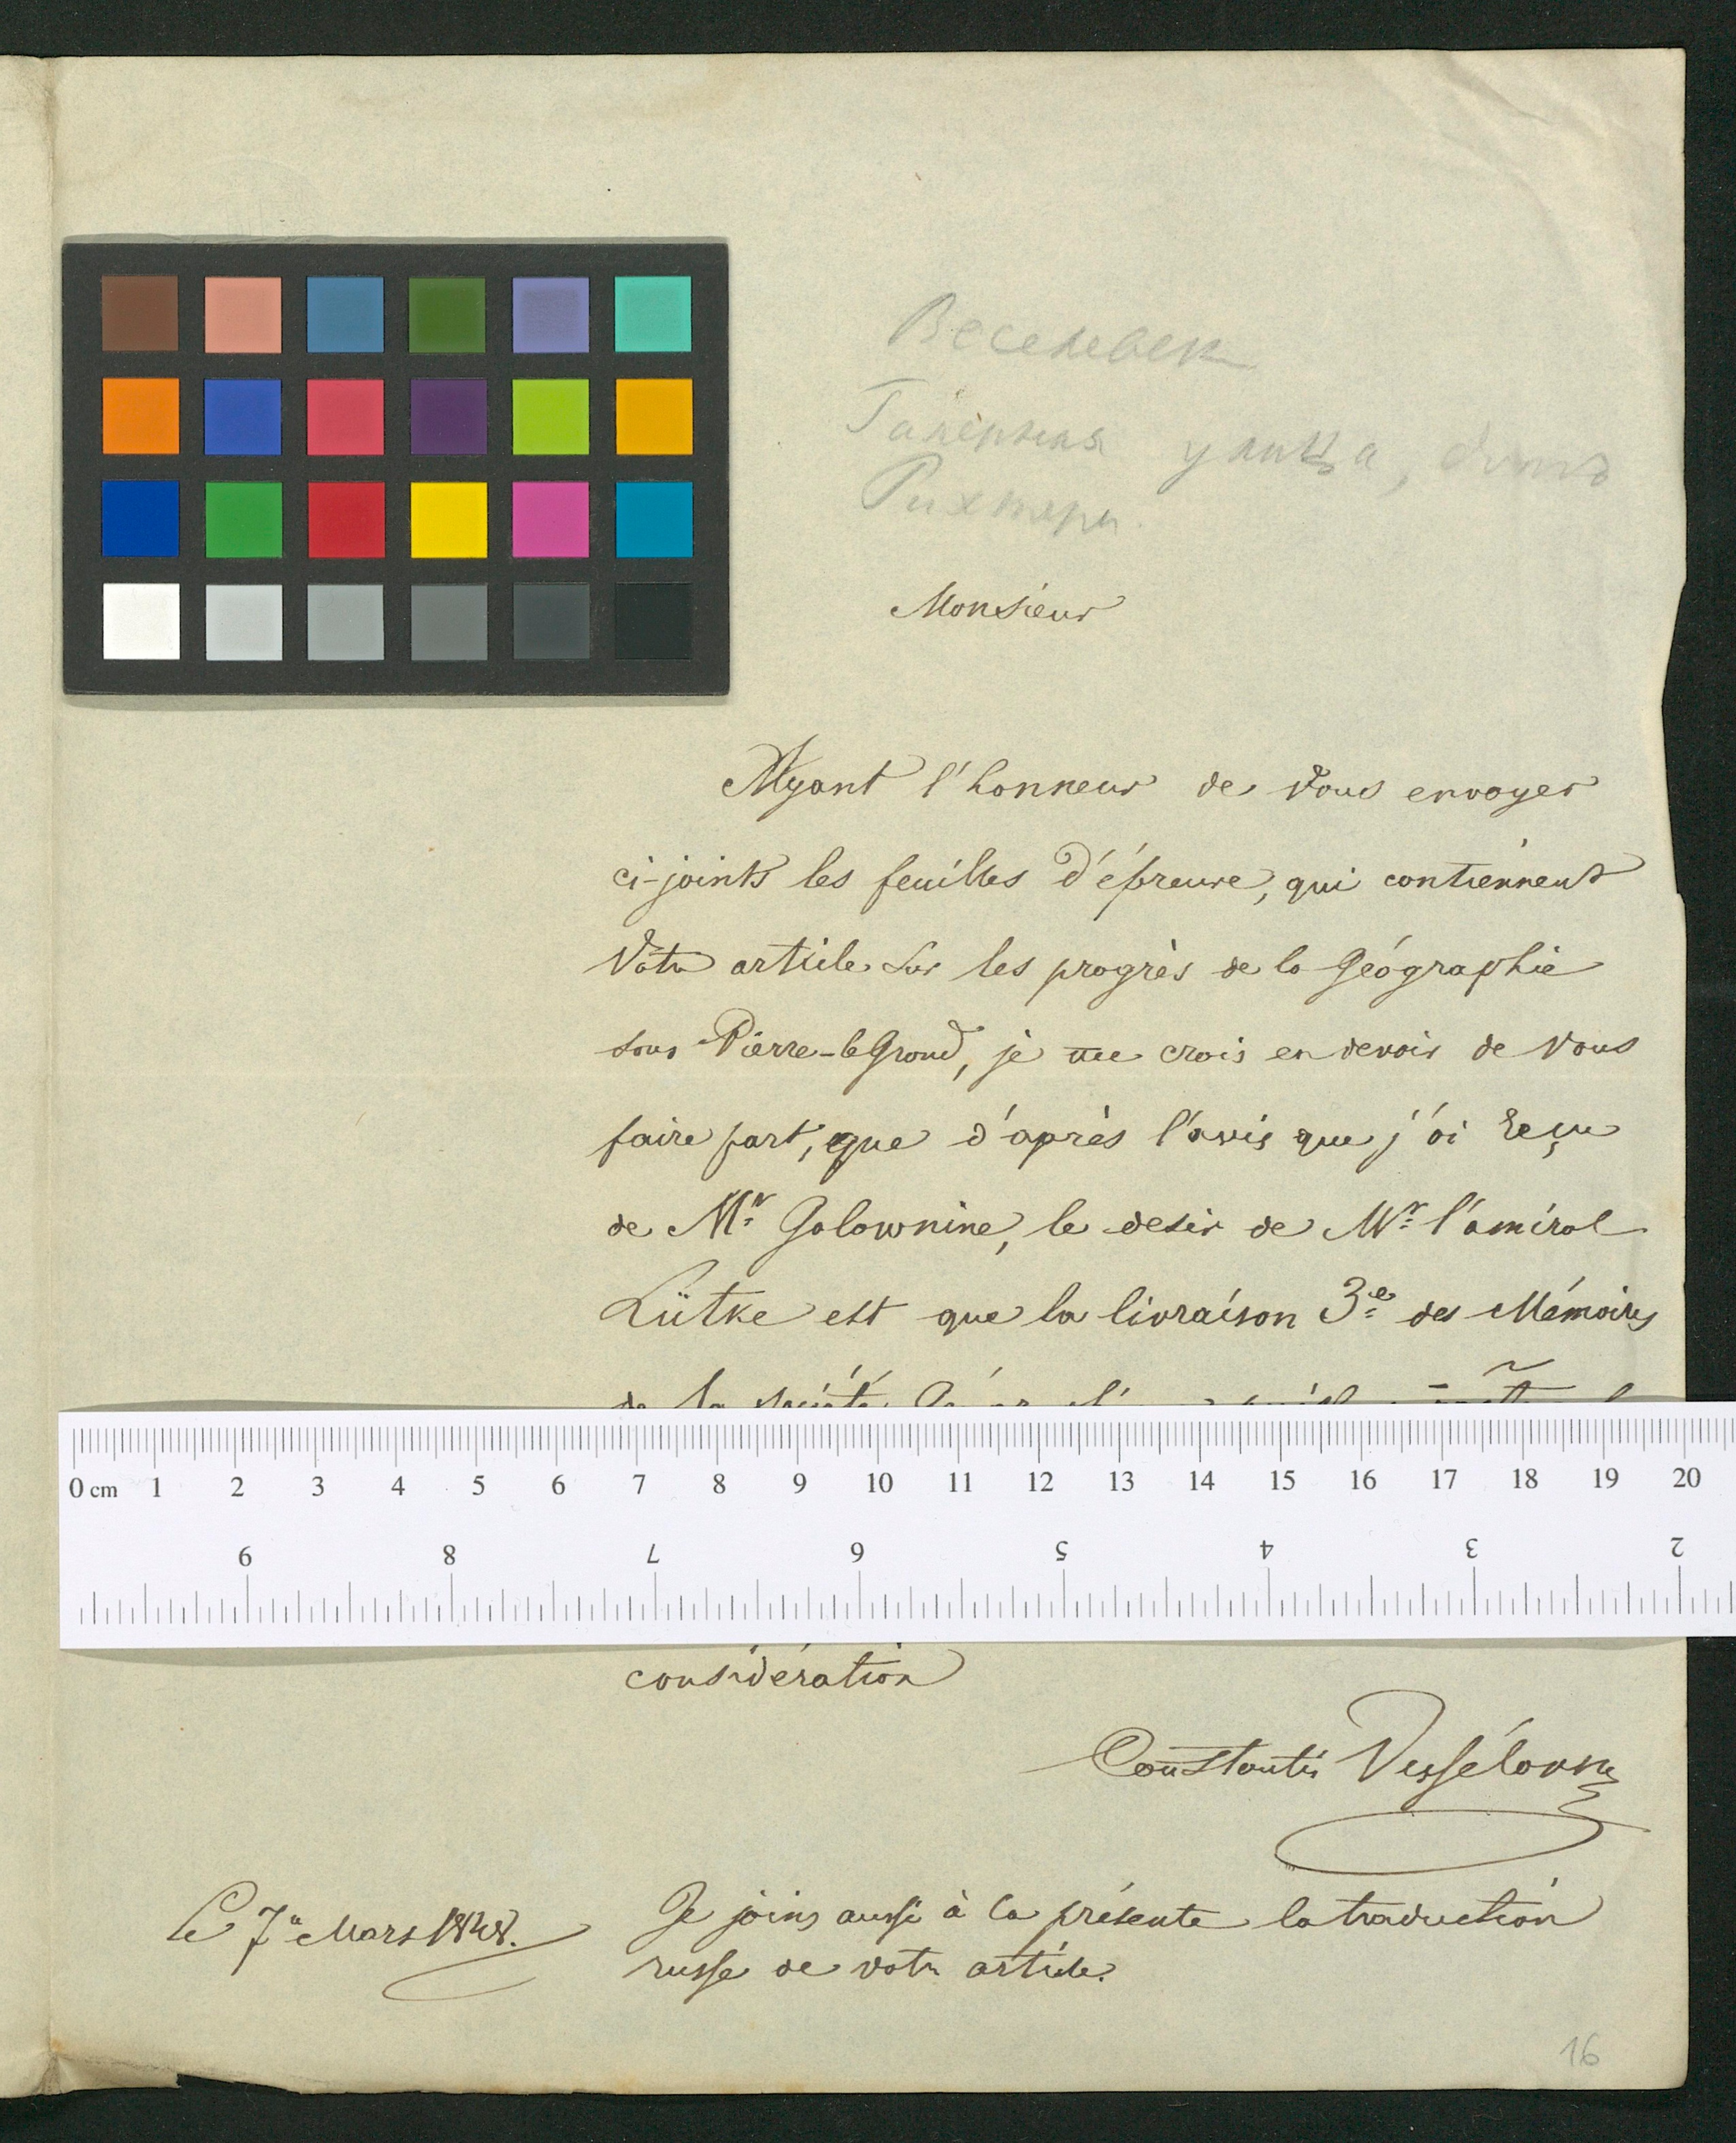 Веселовск
Галерная улица, домъ
Рихтера.
Monsieur
Ayant l'honneur de Vous envoyer
ci-joints les feuilles d'épreuve, qui contiennent
Votre article sur les progrès de la Géographie
sous Pierre-le Grand, je me crois en devoir de Vous
faire part, que d'après l'avis que j'ai reçu
de Mr Golownine, le desir de Mr l'amiral
Lütke est que la livraison 3e des Mémoires
de la société
0 cm 1 2 3 4 5 6 7 8 9 10 11 12 13 14 15 16 17 18 19 20
9 8 7 6 5 4 3 2
considération
Constantin Vessélovsky
Le 7 Mars 1848.
Je joins aussi à la présente la traduction
russe de votre article.
16